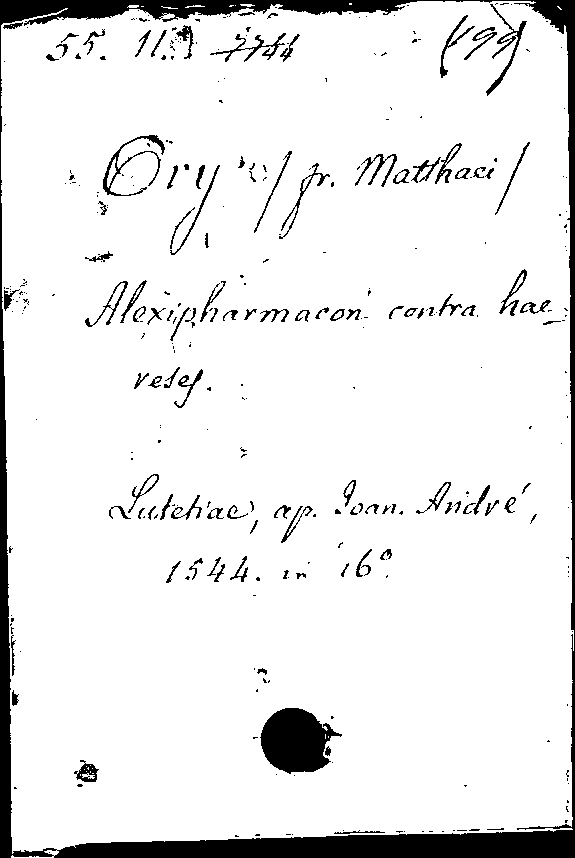 55. 11. 7744 (499)
Ory / fr. Matthaei /
Alexipharmacon contra hae-
reses.
Lutetiae, ap. Joan. André,
1544. in 16°.